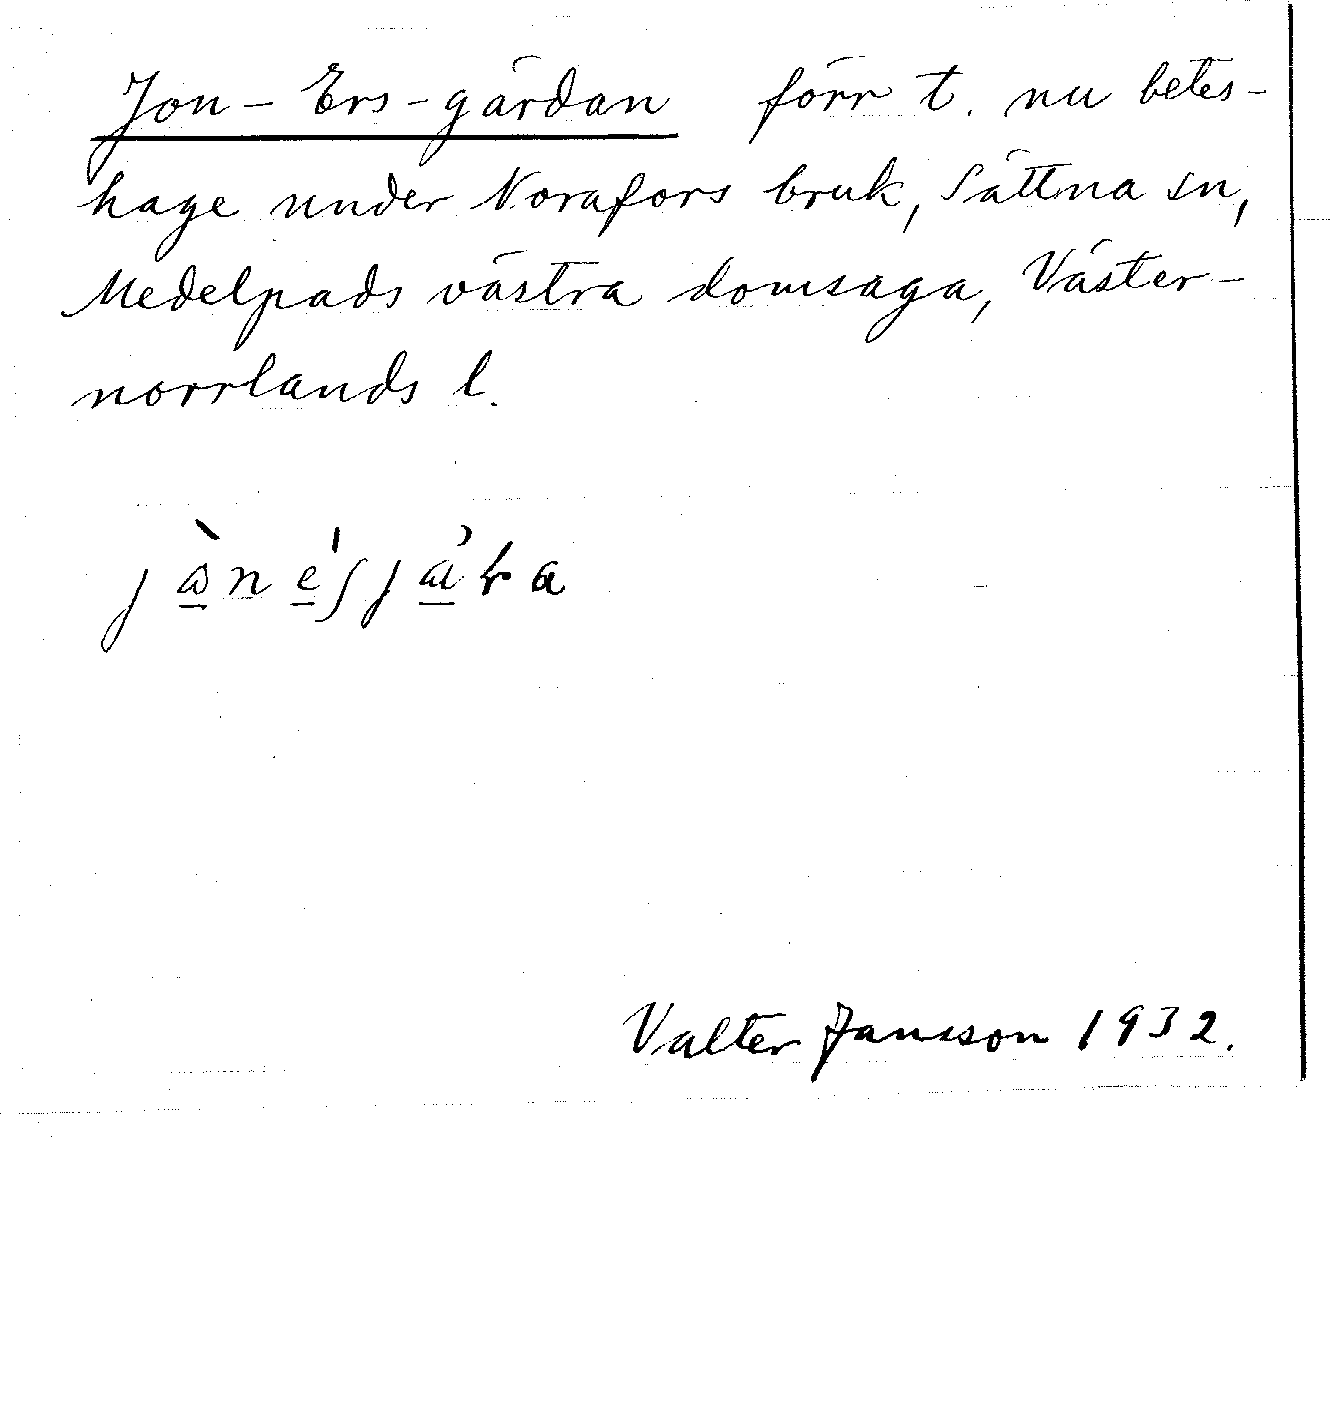 Jon-Ers-gärdan förr t. nu betes-
hage under Norafors bruk, Sättna sn,
Medelpads västra domsaga, Väster-
norrlands l.
Valter Jansson 1932.